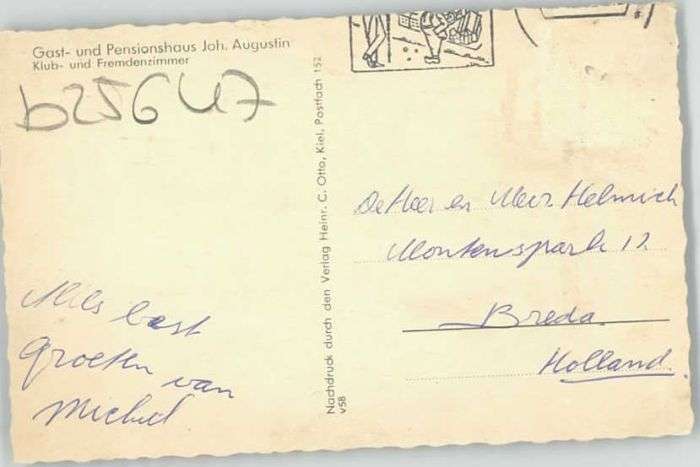 Gast- und Pensionshaus Joh. Augustin
Klub- und Fremdenzimmer
b25647
Alles best
Groeten van
Michel
Nachdruck durch den Verlag Heinr. C. Otto, Kiel, Postfach 152
v58
De Heer en Mevr. Helmich
Montenspark 12
Breda
Holland